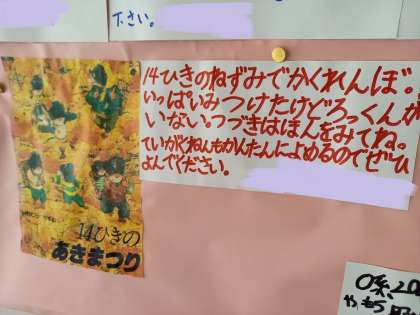 下さい。
14ひきのねずみでかくれんぼ。
いっぱいみつけたけどろっくんが
いない。つづきはほんをみてね。
ていがくねんもかんたんによめるのでぜひ
よんでください。
14ひきの
あきまつり